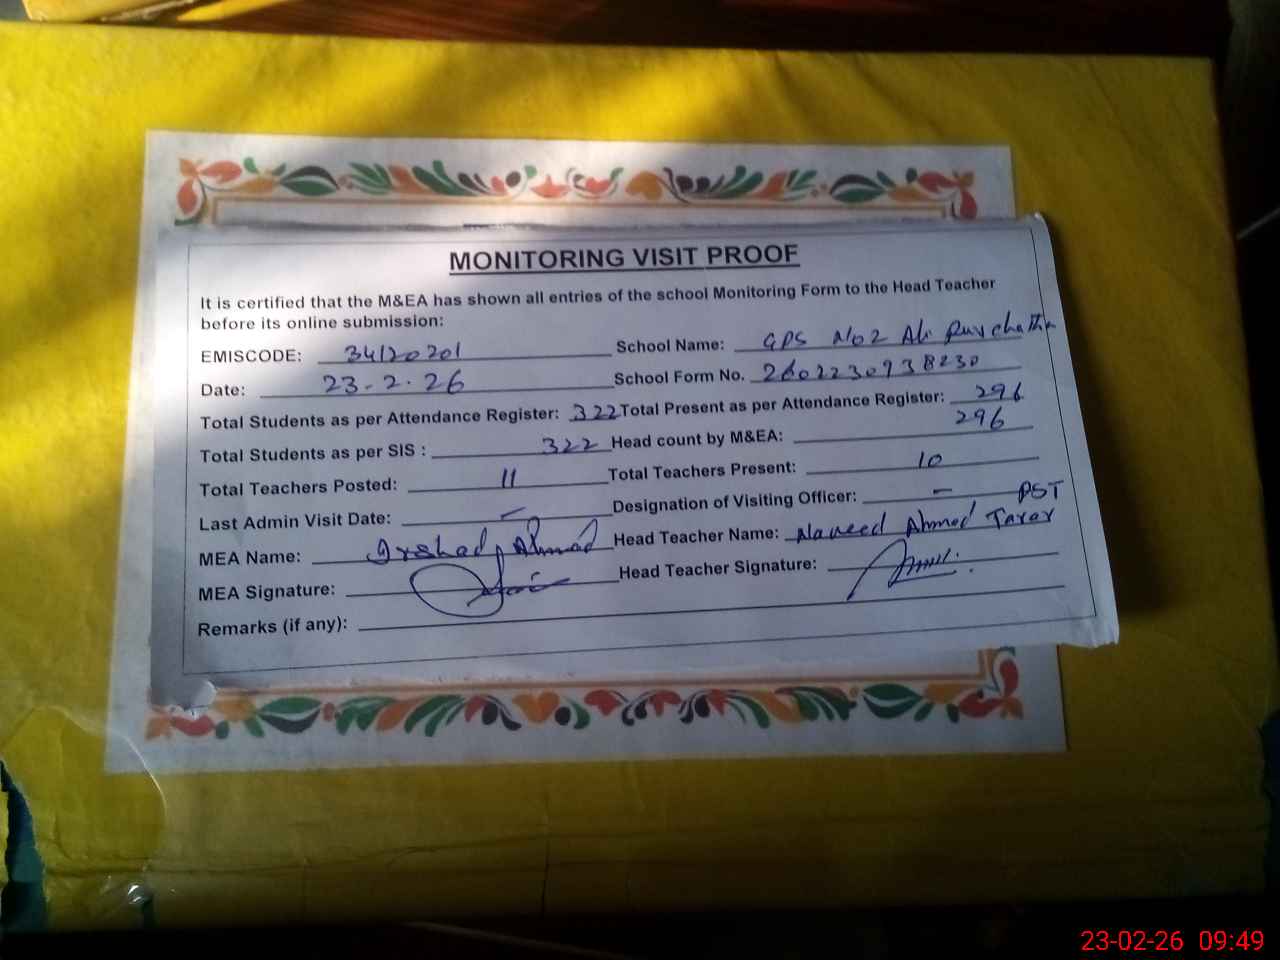 MONITORING VISIT PROOF
It is certified that the M&EA has shown all entries of the school Monitoring Form to the Head Teacher
before its online submission:
EMISCODE: 34120201 School Name: GPS No2 Ali Pur Chatha
Date: 23-2-26 School Form No. 2602230938230
Total Students as per Attendance Register: 322 Total Present as per Attendance Register: 296
Total Students as per SIS : 322 Head count by M&EA: 296
Total Teachers Posted: 11 Total Teachers Present: 10
Last Admin Visit Date: – Designation of Visiting Officer: –
MEA Name: Irshad Ahmad Head Teacher Name: Naveed Ahmed Tarar PST
MEA Signature: Head Teacher Signature:
Remarks (if any):
23-02-26 09:49